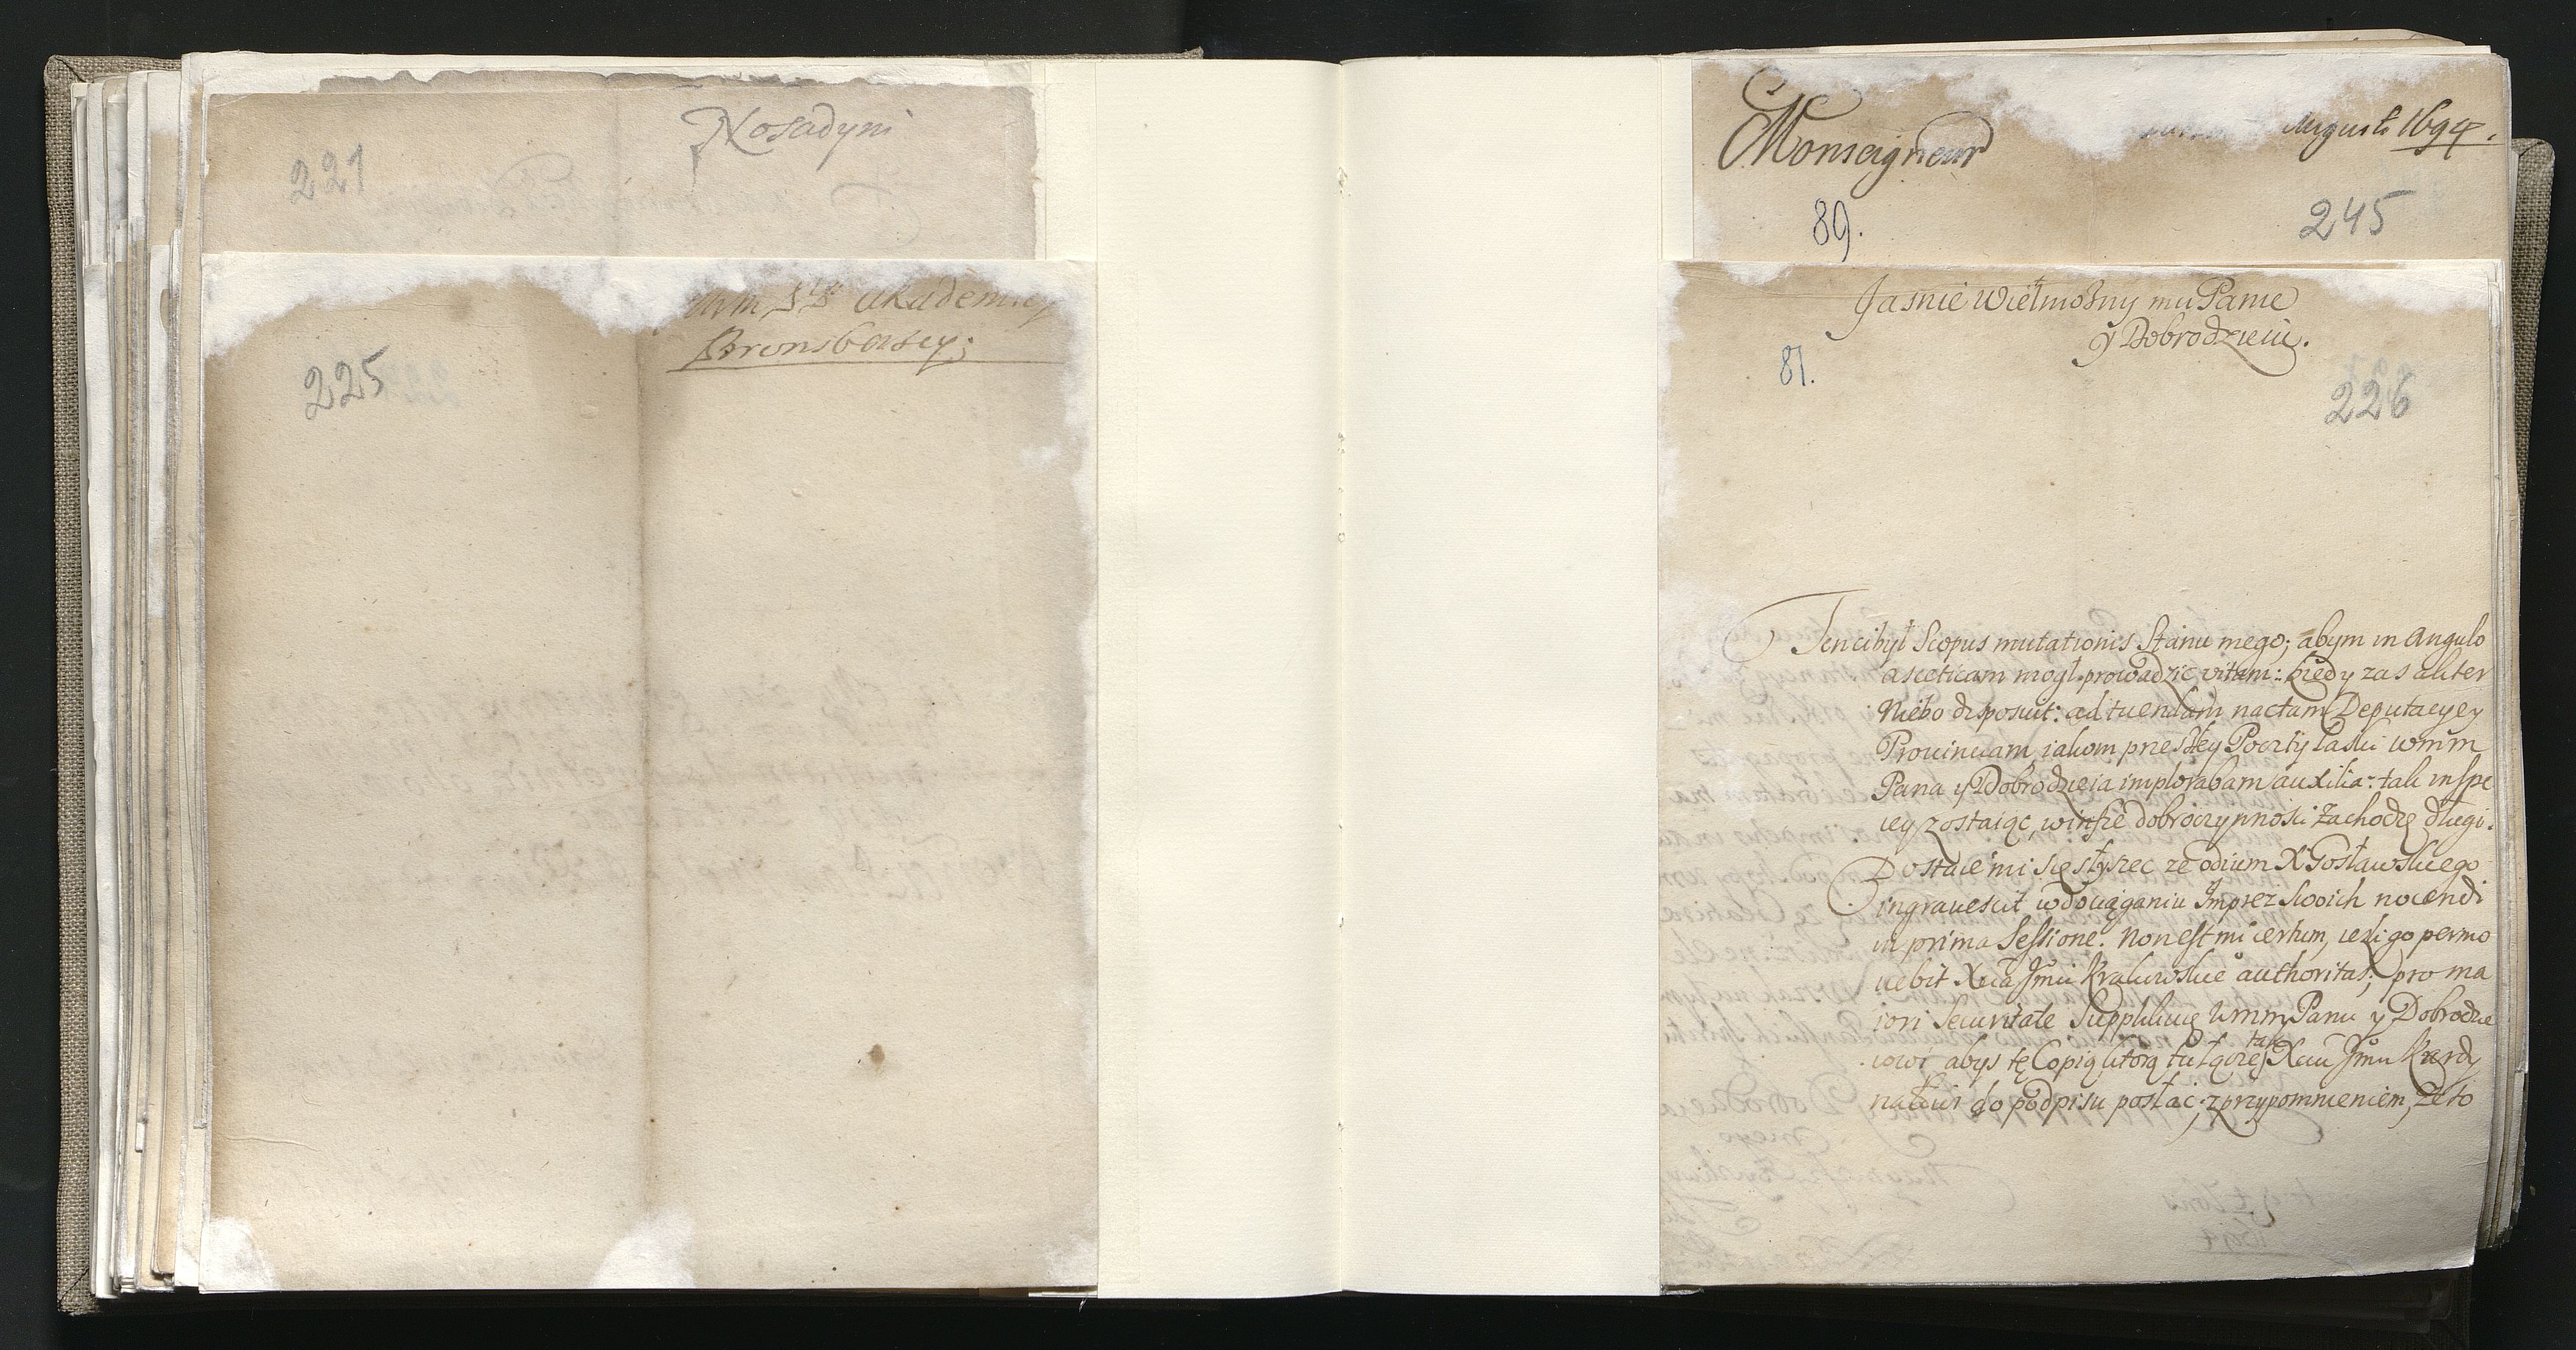 Nosadyni
221
akademicy
Bronsbersey;
225
Monseigneur
Augusti 1694.
89.
245
Jasnie Wielmozny mu Panie
y Dobrodzieiu.
87.
226
Ten ci był Scopus mutationis Stanu mego; abym in angulo
asceticam mogl prowadzic vitam: kiedy zas aliter
Niebo disposuit: ad tuendam nactam Deputacyey
Prouinciam, iakom przeszłey Poczty łaski wmm
Pana y Dobrodzieia implorabam auxilia: tak in spe
iey zostaiąc, winszé dobroczynnosci zachodzę długi.
Dostaie mi się słyszec ze odium X Gosławskiego
ingrauescit w dociąganiu Imprez swoich nocendi
in prima Sessione. Non est mi certum, iezli go permo
uebit Xcia Jmci Kralewskie authoritas; pro ma
iori Securitate Supplikuię Wmm Panu y Dobrodzie
iowi abys tę Copią ktorą tu łączę, Xciu Jmci Kardy
nałowi do podpisu posłac; z przypomnieniem, ze to